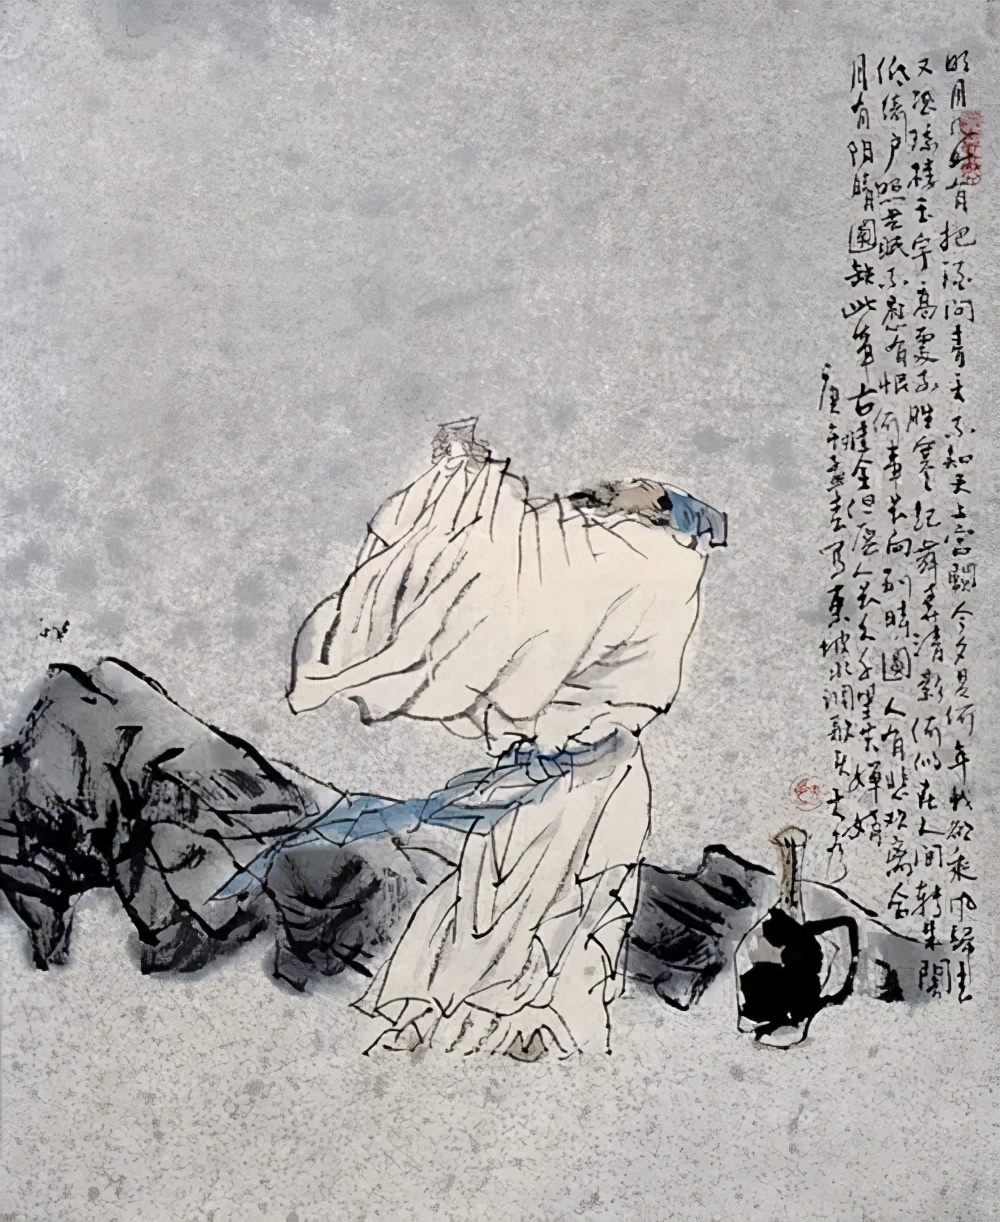 明月几时有把酒问青天不知天上宫闕今夕是何年我欲乘风歸去
又恐瓊樓玉宇高處不胜寒起舞弄清影何似在人间转朱阁
低绮户照无眠不應有恨何事长向别時圓人有悲欢离合
月有阴晴圓缺此事古難全但愿人长久千里共婵娟
庚午孟春写東坡水调歌头